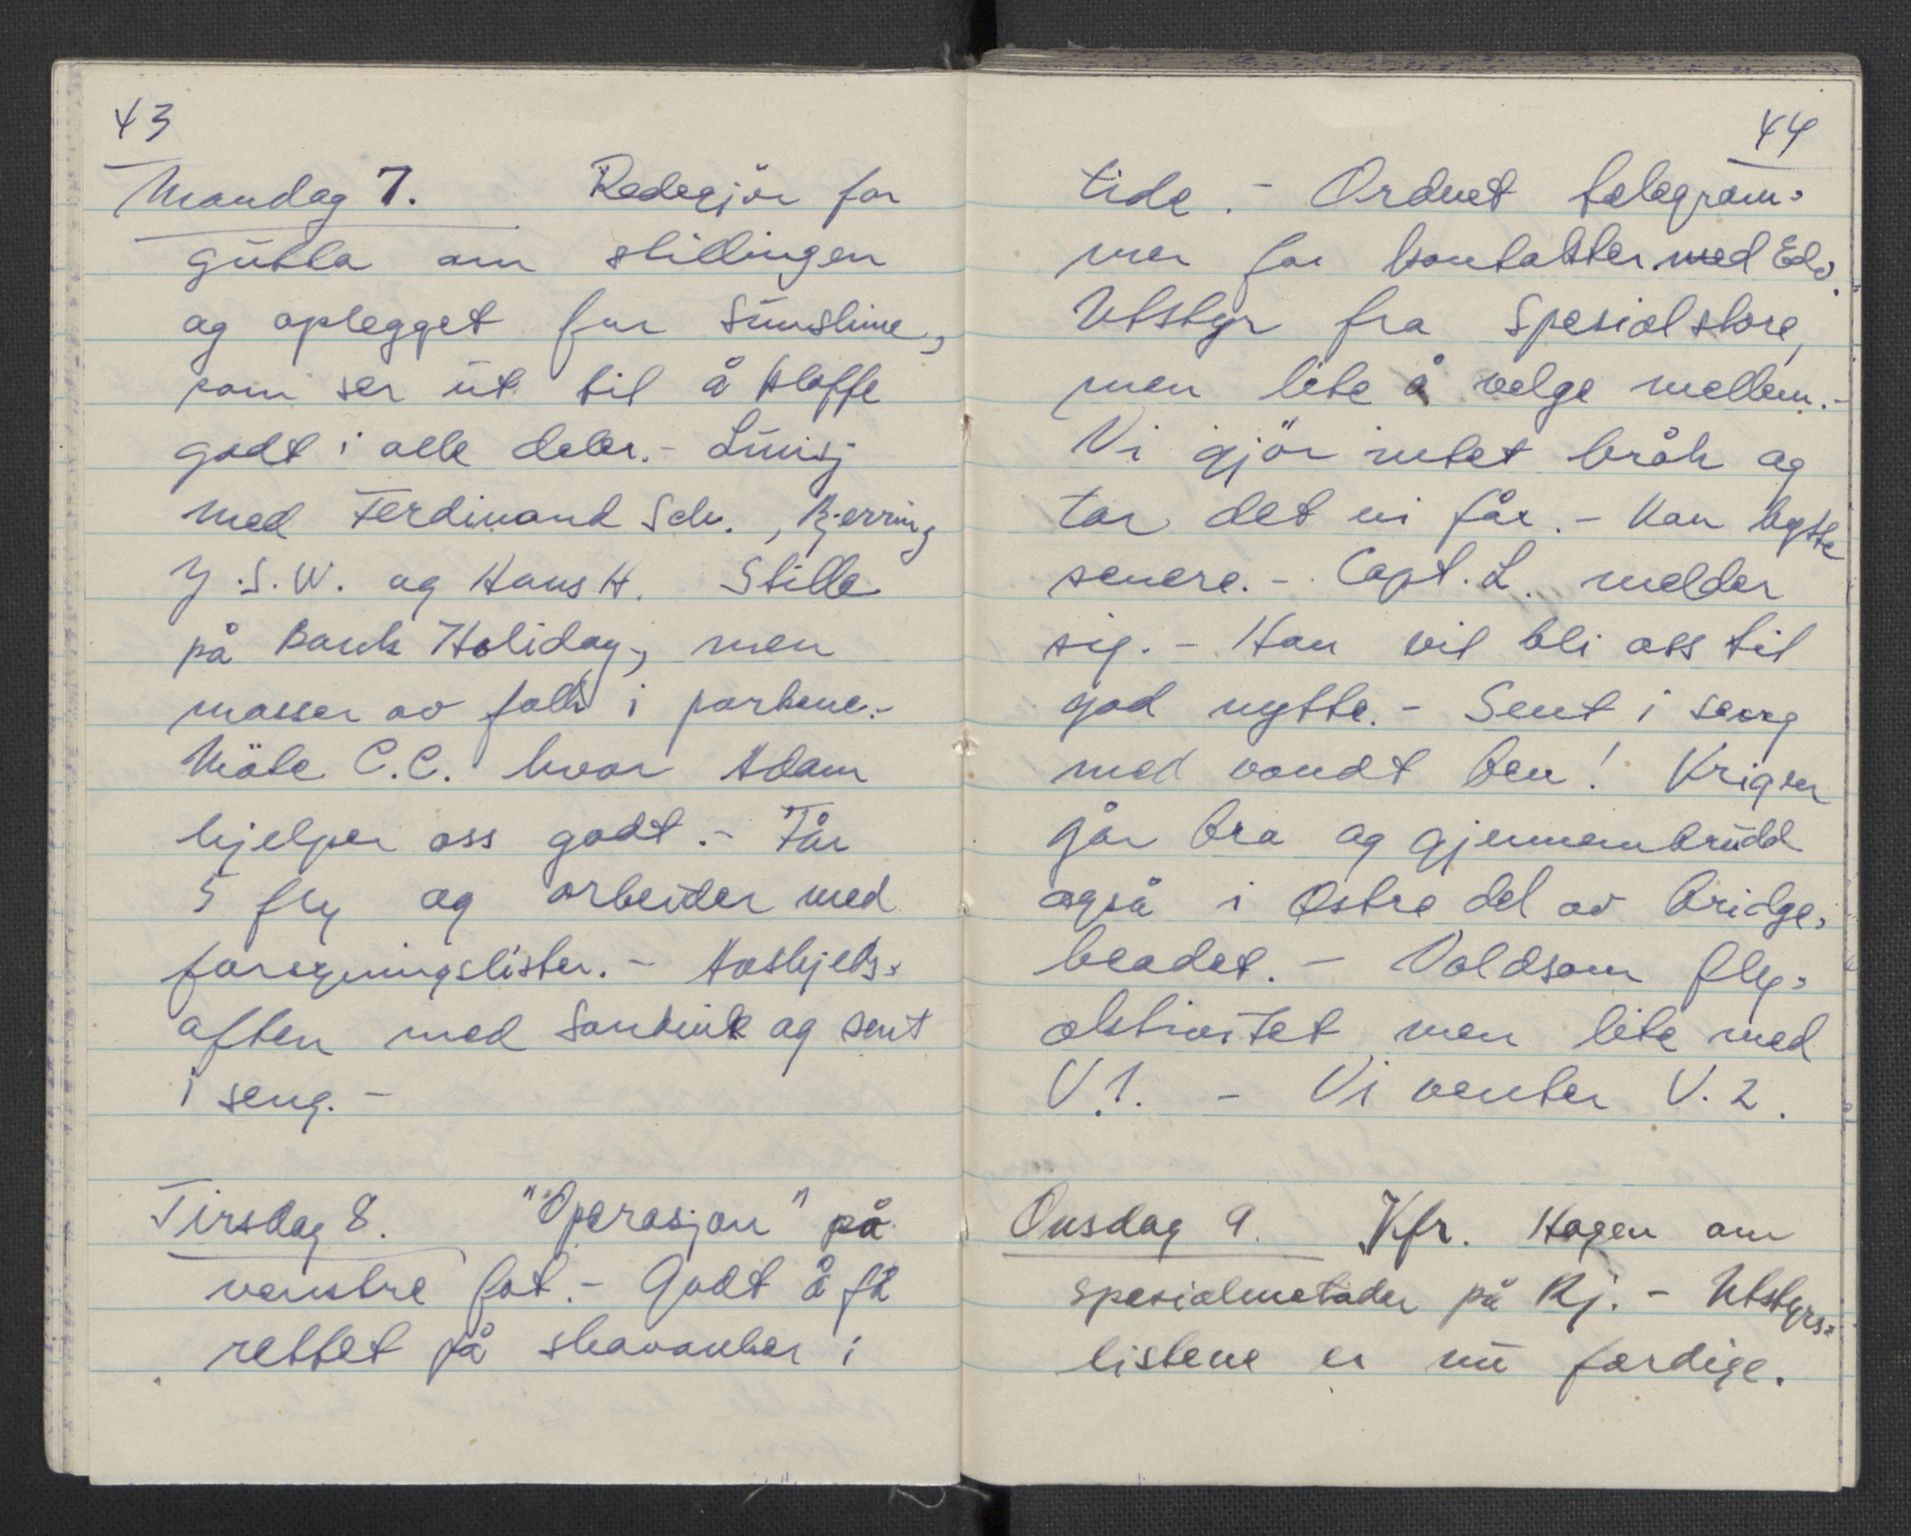 43
Mandag 7. Redegjör for
gutta om stillingen
og oplegget for Sunshine,
som ser ut til å klaffe
godt i alle deler. - Lunsj
med Ferdinand Sch., Bjerring
J.S.W. og Hans H. Stille
på Bank Holiday, men
masser av folk i parkene. -
Möte C.C. hvor Adam
hjelper oss godt. - Får
5 fly og arbeider med
forsyningslister. - Avskjeds=
aften med Sanhink og sent
i seng. -
Tirsdag 8. "Operasjon" på
venstre fot. - Godt å få
rettet på skavanker i
44
tide. - Ordnet telegram=
mer for kontakter med Edv.
Utstyr fra Spesialstore,
men lite å velge mellem. -
Vi gjör intet bråk og
tar det vi får. - Kan bytte
senere. - Capt. L. melder
sig. - Han vil bli oss til
god nytte. - Sent i seng
med vondt ben! Krigen
går bra og gjennembrudd
også i østre del av bridge=
headet. - Voldsom fly=
aktivitet men lite med
V.1. - Vi venter V.2.
Onsdag 9. Kfr. Hagen om
spesialmetoder på Rj. - Utstyrs=
listene er nu færdige.